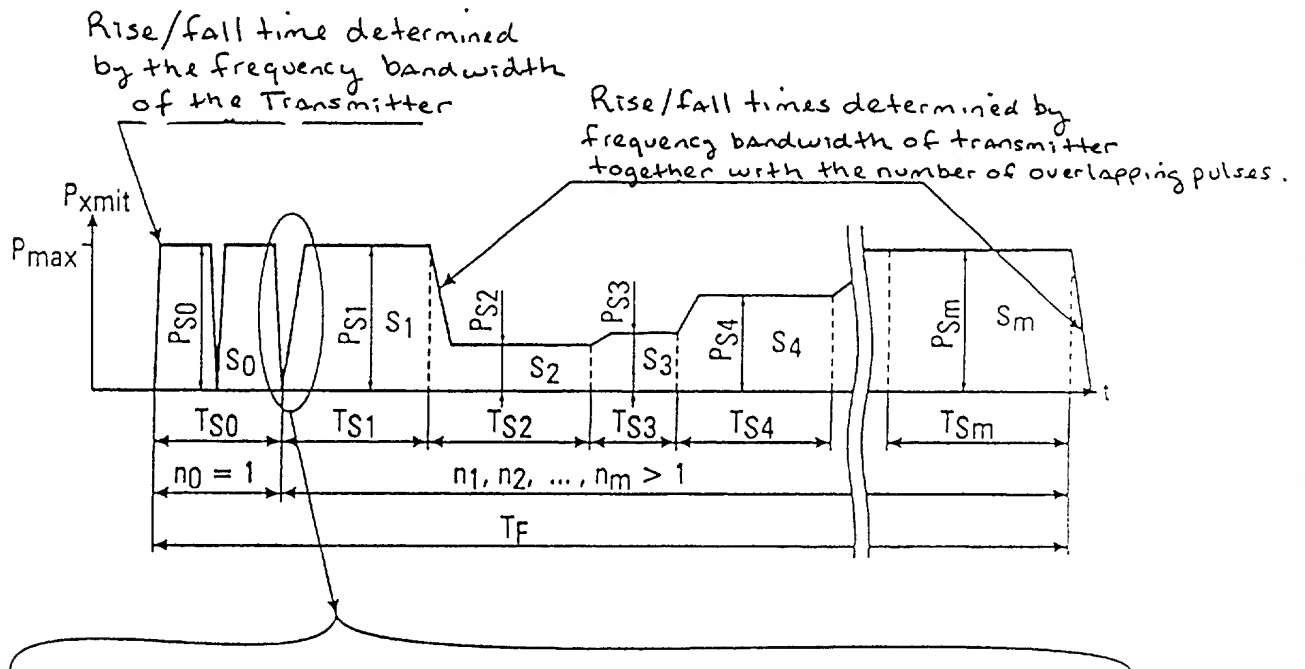 Rise/fall time determined
by the frequency bandwidth
of the Transmitter
Rise/fall times determined by
frequency bandwidth of transmitter
together with the number of overlapping pulses.
Pxmit
Pmax
PS0
S0
PS1
S1
PS2
S2
PS3
S3
PS4
S4
PSm
Sm
t
TS0
TS1
TS2
TS3
TS4
TSm
n0 = 1
n1, n2, ..., nm > 1
TF